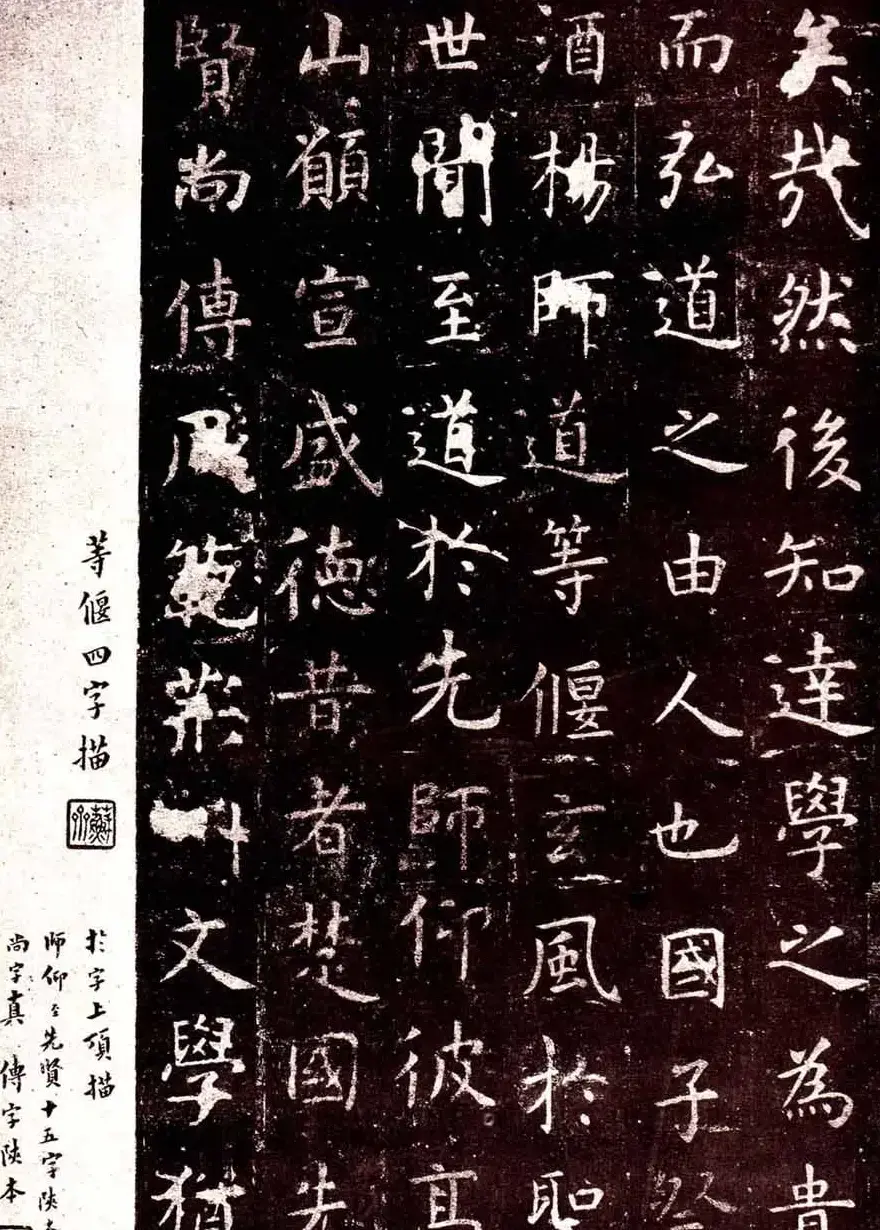 矣哉然後知達學之為貴
而弘道之由人也國子祭
酒楊師道等偃玄風於聖
世聞至道於先師仰彼高
山願宣盛德昔者楚國先
賢尚傳風範荊州文學猶
等偃四字描
於字上項描
師仰至先賢十五字陝本
尚字真 傳字陝本